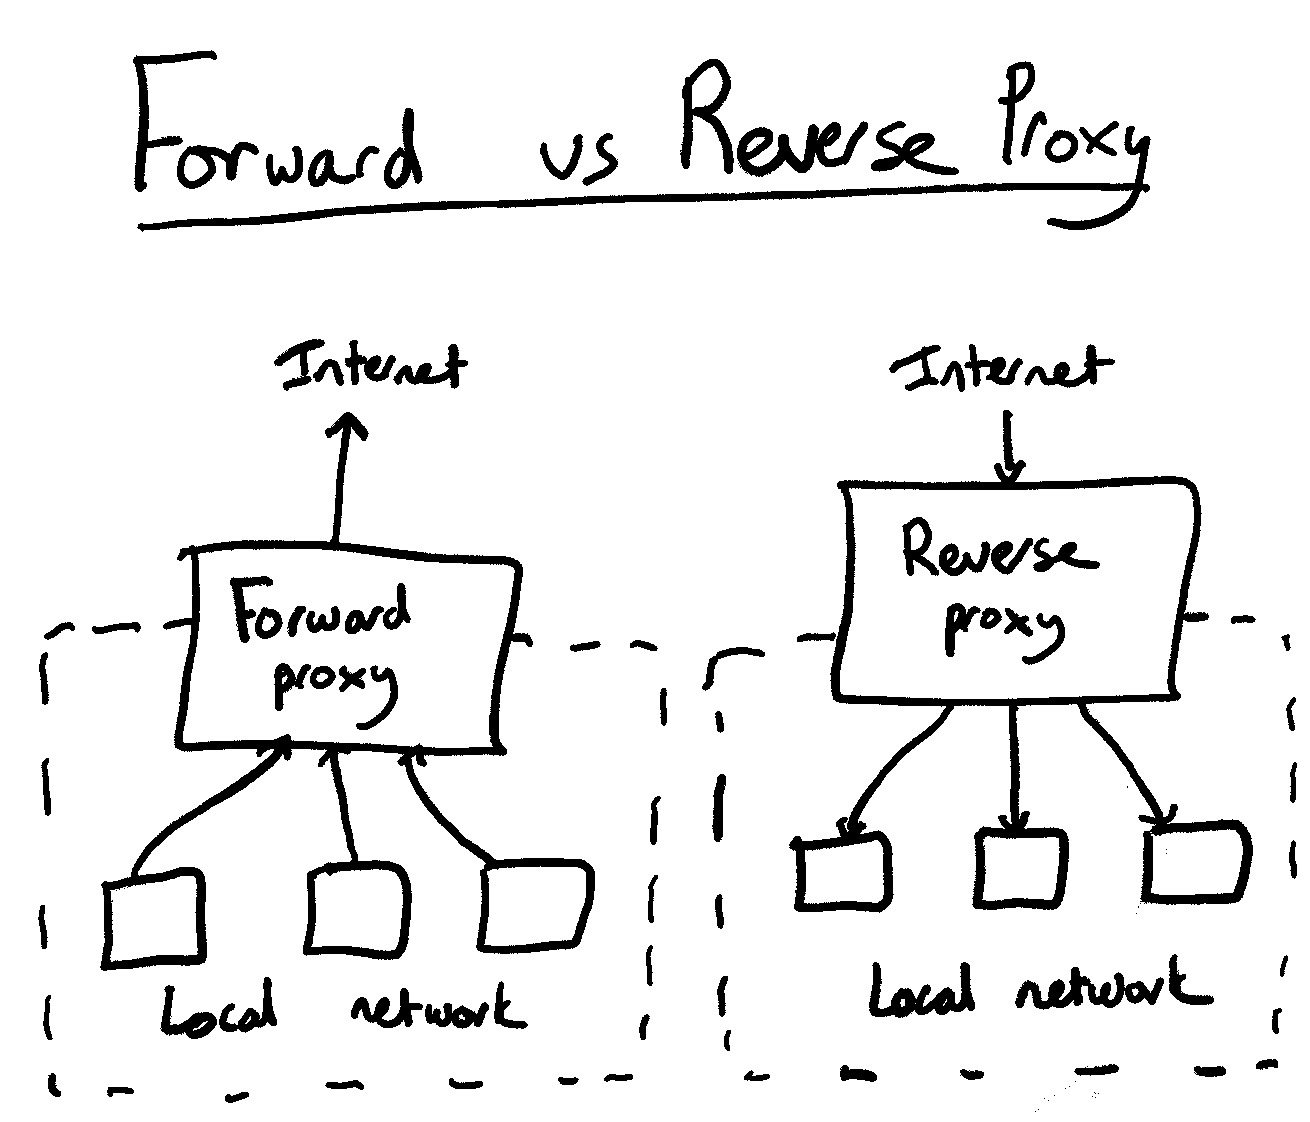 Forward vs Reverse Proxy
Internet
Forward
proxy
Local network
Internet
Reverse
proxy
Local network